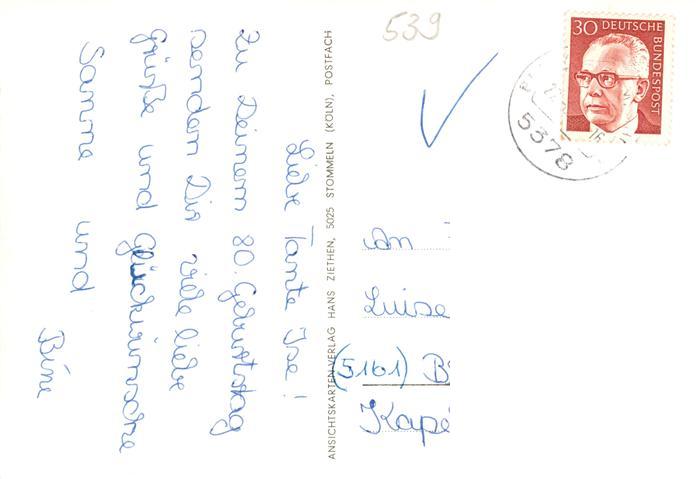 539
30 DEUTSCHE
BUNDESPOST
5378
Liebe Tante Ise!
Zu Deinem 80. Geburtstag
senden Dir viele liebe
Grüße und Glückwünsche
Samma und
Bine
ANSICHTSKARTEN-VERLAG HANS ZIETHEN, 5025 STOMMELN (KÖLN), POSTFACH
An
Luise
(5161) B
Kape